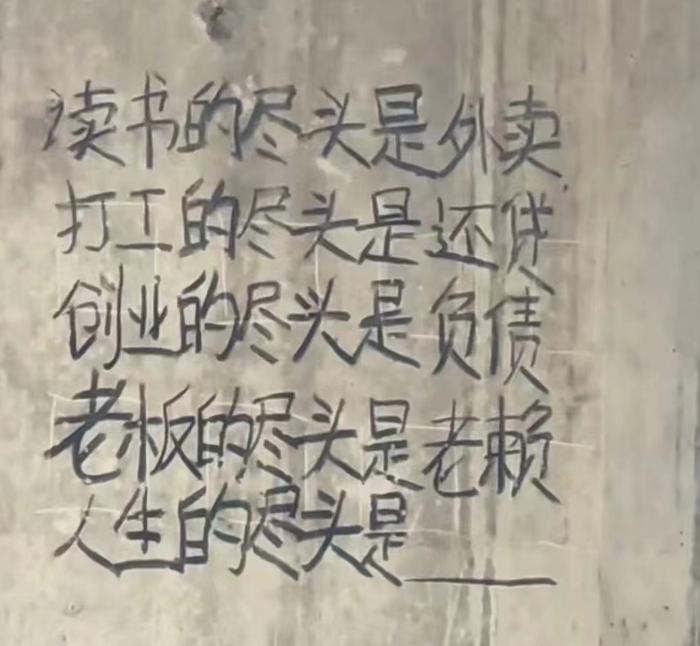 读书的尽头是外卖
打工的尽头是还贷
创业的尽头是负债
老板的尽头是老赖
人生的尽头是______